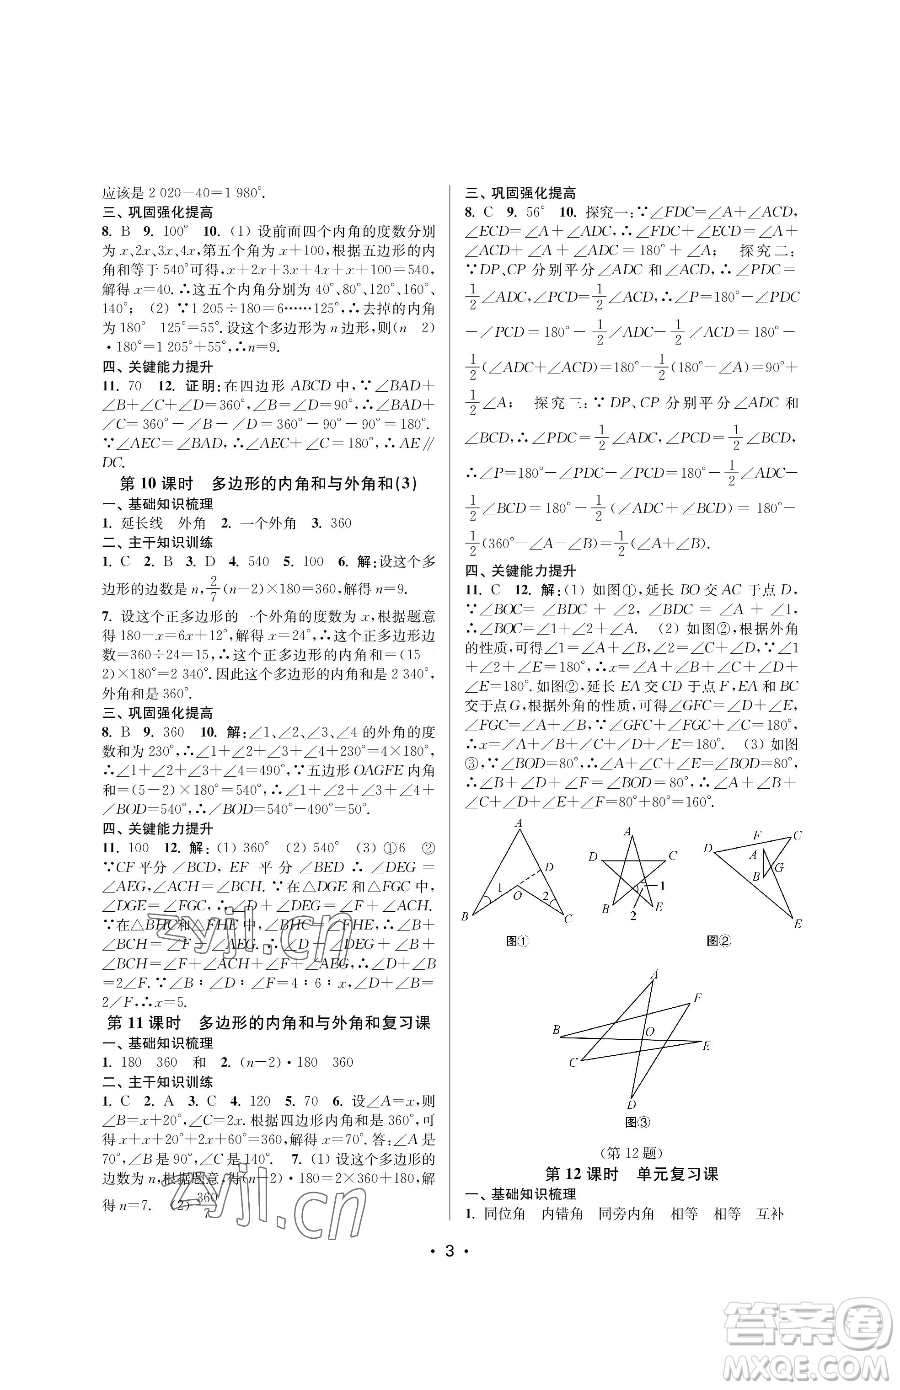 应该是 2 020－40＝1 980°.
三、巩固强化提高
8. B　9. 100°　10. (1) 设前面四个内角的度数分别
为 x、2x、3x、4x, 第五个角为 x＋100, 根据五边形的内
角和等于 540°可得, x＋2x＋3x＋4x＋x＋100＝540,
解得 x＝40. ∴这五个内角分别为 40°、80°、120°、160°、
140°;　(2) ∵1 205÷180＝6……125°, ∴去掉的内角
为 180°　125°＝55°. 设这个多边形为 n 边形, 则(n　2)
·180°＝1 205°＋55°, ∴n＝9.
四、关键能力提升
11. 70　12. 证明: 在四边形 ABCD 中, ∵∠BAD＋
∠B＋∠C＋∠D＝360°, ∠B＝∠D＝90°, ∴∠BAD＋
∠C＝360°－∠B－∠D＝360°－90°－90°＝180°.
∵∠AEC＝∠BAD, ∴∠AEC＋∠C＝180°, ∴AE∥
DC.
第 10 课时　多边形的内角和与外角和(3)
一、基础知识梳理
1. 延长线　外角　2. 一个外角　3. 360
二、主干知识训练
1. C　2. B　3. D　4. 540　5. 100　6. 解: 设这个多
边形的边数是 n, 2/7 (n－2)×180＝360, 解得 n＝9.
7. 设这个正多边形的一个外角的度数为 x, 根据题意
得 180－x＝6x＋12, 解得 x＝24°. ∴这个正多边形边
数＝360÷24＝15, ∴这个正多边形的内角和＝(15
2)×180°＝2 340°. 因此这个多边形的内角和是 2 340°,
外角和是 360°.
三、巩固强化提高
8. B　9. 360　10. 解: ∵∠1、∠2、∠3、∠4 的外角的度
数和为 230°, ∴∠1＋∠2＋∠3＋∠4＋230°＝4×
180°, ∴∠1＋∠2＋∠3＋∠4＝490°, ∵五边形 OAGFE 内角
和＝(5－2)×180°＝540°, ∴∠1＋∠2＋∠3＋∠4＋
∠BOD＝540°, ∴∠BOD＝540°－490°＝50°.
四、关键能力提升
11. 100　12. 解: (1) 360°　(2) 540°　(3) ①6　②
∵CF 平分∠BCD, EF 平分∠BED　∴∠DEG＝
∠AEG, ∠ACH＝∠BCH. ∵在△DGE 和△FGC 中,
∠DGE＝∠FGC, ∴∠D＋∠DEG＝∠F＋∠ACH.
∵在△BHC 和△FHE 中, ∠BHC＝∠FHE, ∴∠B＋
∠BCH＝∠F＋∠AEG, ∴∠D＋∠DEG＋∠B＋
∠BCH＝∠F＋∠ACH＋∠F＋∠AEG, ∴∠D＋∠B
＝2∠F. ∵∠B∶∠D∶∠F＝4∶6∶x, ∴∠D＋∠B＝
2∠F, ∴x＝5.
第 11 课时　多边形的内角和与外角和复习课
一、基础知识梳理
1. 180　360　和　2. (n－2)·180　360
二、主干知识训练
1. C　2. A　3. C　4. 120　5. 70　6. 设∠A＝x, 则
∠B＝x＋20°, ∠C＝2x. 根据四边形内角和是 360°, 可
得 x＋x＋20°＋2x＋60°＝360°, 解得 x＝70°. 答: ∠A 度
数是 70°, ∠B 度数是 90°, ∠C 是 140°.　7. (1) 设这个多边形的
边数为 n, 根据题意, 得(n－2)·180＝2×360＋180, 解
得 n＝7.　(2) 360/7
三、巩固强化提高
8. C　9. 56°　10. 探究一: ∵∠FDC＝∠A＋∠ACD,
∠ECD＝∠A＋∠ADC, ∴∠FDC＋∠ECD＝∠A＋
∠ACD＋∠A＋∠ADC＝180°＋∠A;　探究二:
∵DP、CP 分别平分∠ADC 和∠ACD, ∴∠PDC＝
1/2 ∠ADC, ∠PCD＝1/2 ∠ACD, ∴∠P＝180°－∠PDC
－∠PCD＝180－1/2 ∠ADC－1/2 ∠ACD＝180°－
1/2 (∠ADC＋∠ACD)＝180－1/2 (180－∠A)＝90°＋
1/2 ∠A;　探究三: ∵DP、CP 分别平分∠ADC 和
∠BCD, ∴∠PDC＝1/2 ∠ADC, ∠PCD＝1/2 ∠BCD,
∴∠P＝180°－∠PDC－∠PCD＝180－1/2 ∠ADC－
1/2 ∠BCD＝180°－1/2 (∠ADC＋∠BCD)＝180°－
1/2 (360°－∠A－∠B)＝1/2 (∠A＋∠B).
四、关键能力提升
11. C　12. 解: (1) 如图①, 延长 BO 交 AC 于点 D,
∵∠BOC＝∠BDC＋∠2, ∠BDC＝∠A＋∠1,
∴∠BOC＝∠1＋∠2＋∠A.　(2) 如图②, 根据外角
的性质, 可得∠1＝∠A＋∠B, ∠2＝∠C＋∠D. ∵∠1
＋∠2＋∠E＝180°, ∴x＝∠A＋∠B＋∠C＋∠D＋∠E
＝180°. 如图②, 延长 EA 交 CD 于点 F, EA 和 BC
交于点 G, 根据外角的性质, 可得∠GFC＝∠D＋∠E,
∠FGC＝∠A＋∠B, ∵∠GFC＋∠FGC＋∠C＝180°,
∴x＝∠A＋∠B＋∠C＋∠D＋∠E＝180°.　(3) 如图
③, ∵∠BOD＝80°, ∴∠A＋∠C＋∠E＝∠BOD＝80°,
∴∠B＋∠D＋∠F＝∠BOD＝80°, ∴∠A＋∠B＋
∠C＋∠D＋∠E＋∠F＝80°＋80°＝160°.
A
D
1　O　2
B　C
图①
A
D　C
1
B　E
2
图②
F　C
D　A
G
B
E
图②
A
F
B　O
E
C
D
图③
(第 12 题)
第 12 课时　单元复习课
一、基础知识梳理
1. 同位角　内错角　同旁内角　相等　相等　互补
· 3 ·
zyjl.cn
zyjl.cn
答案圈
MXQE.COM